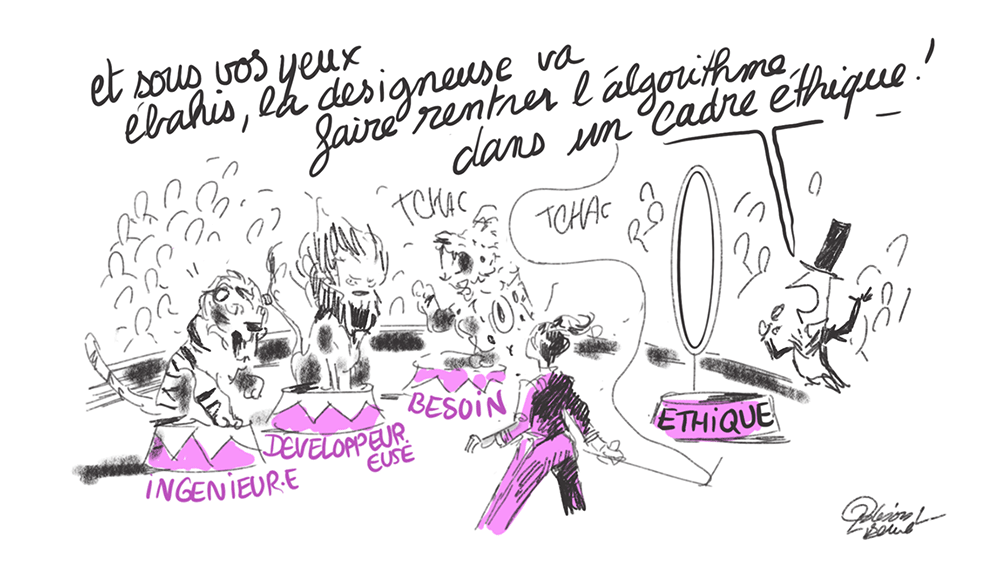 et sous vos yeux
ébahis, la designeuse va
faire rentrer l'algorithme
dans un cadre éthique!
TCHAC
TCHAC
INGENIEUR·E
DEVELOPPEUR·
EUSE
BESOIN
ETHIQUE